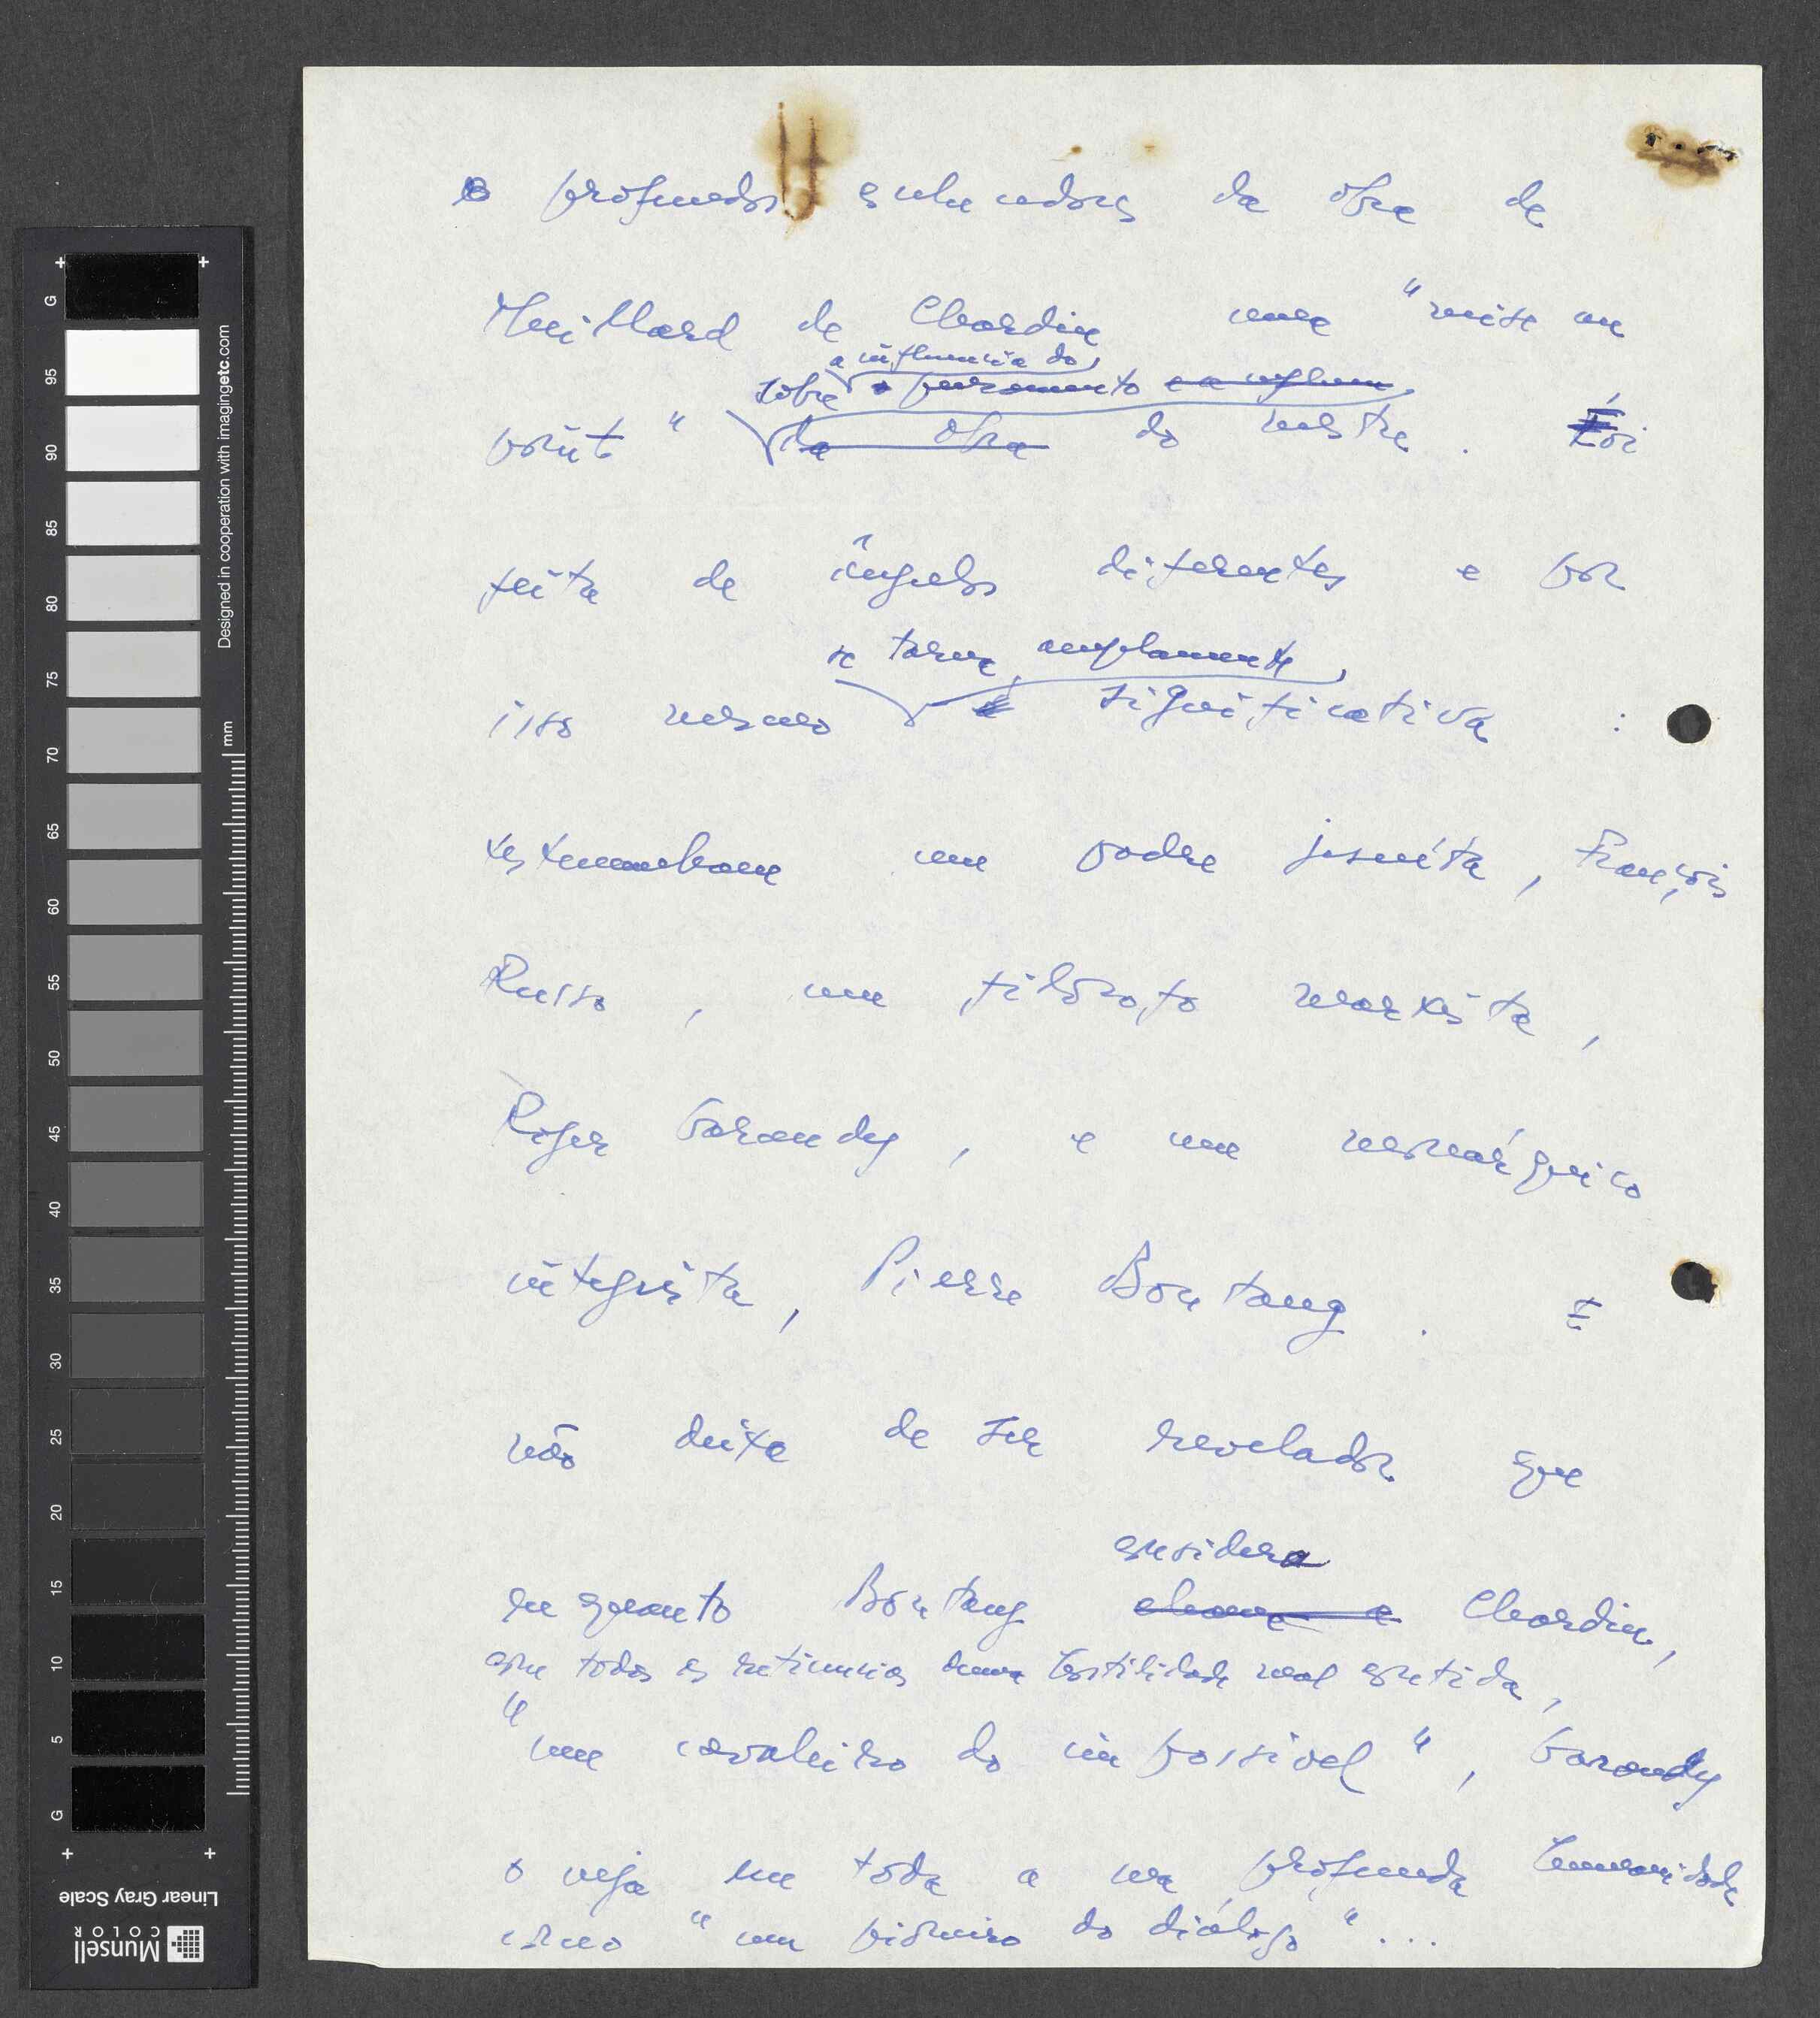 profundos conhecedores da obra de
Theillard de Chardin uma "mise au
a influência do
sobre o pensamento e a influen
point" da obra do mestre. Foi
feita de ângulos diferentes e por
se torna amplamente
isso mesmo é significativa :
testemunham um padre jesuíta, François
Russo, um filósofo marxista,
Roger Garaudy, e um monárquico
integrista, Pierre Boutang. E
não deixa de ser revelador que
considera
enquanto Boutang chama a Chardin,
com todas as reticências duma hostilidade mal contida,
"um cavaleiro do impossível", Garaudy
o veja em toda a sua profunda humanidade
como "um pioneiro do diálogo"...
Designed in cooperation with imagingetc.com
mm
G 95 90 85 80 75 70 65 60 55 50 45 40 35 30 25 20 15 10 5 G
Linear Gray Scale
Munsell
COLOR